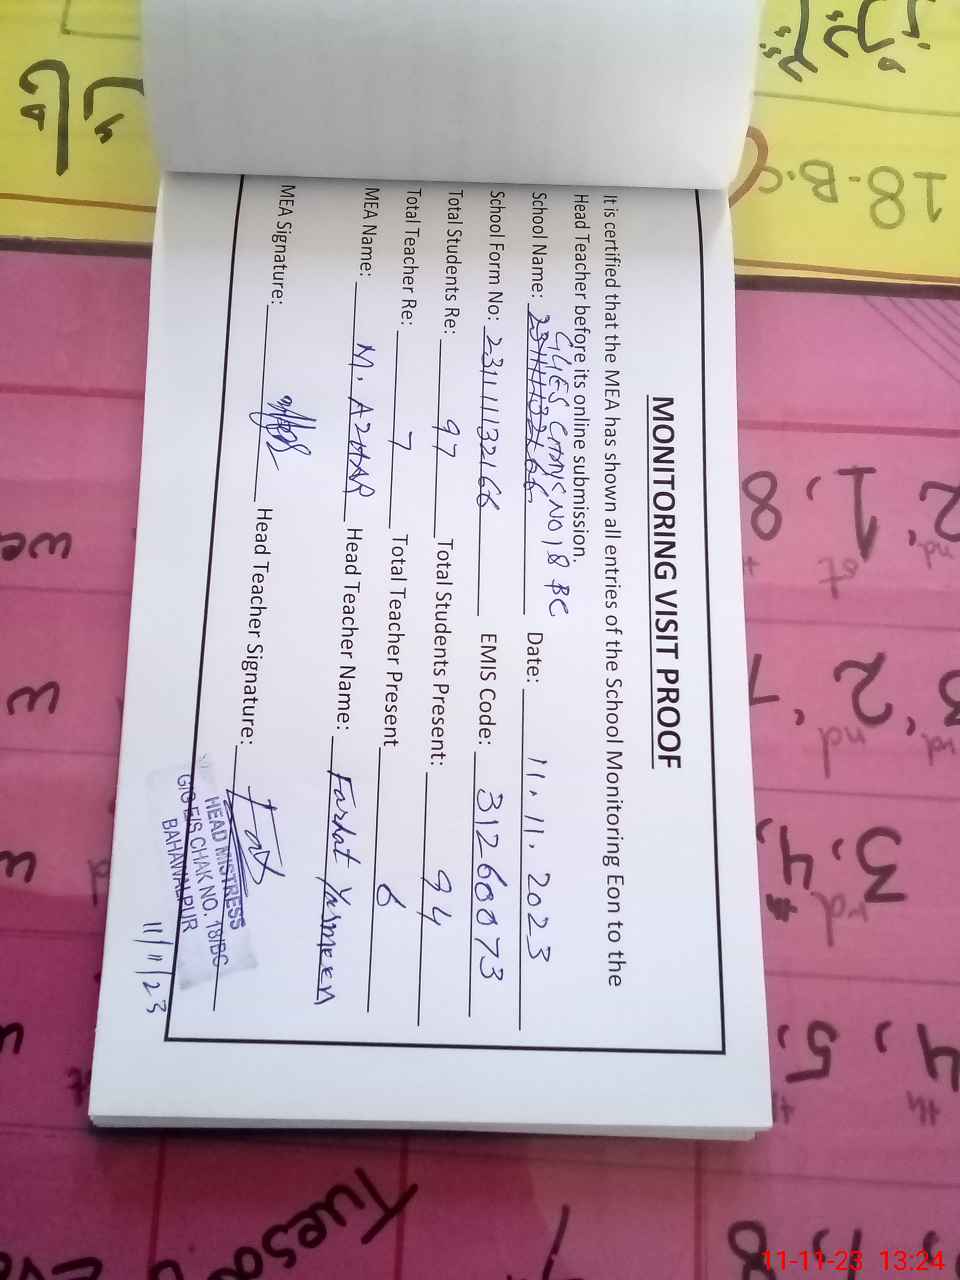 MONITORING VISIT PROOF
It is certified that the MEA has shown all entries of the School Monitoring Eon to the
Head Teacher before its online submission.
School Name: GGES CHAK NO 18 BC Date: 11.11.2023
School Form No: 231111132166 EMIS Code: 31260073
Total Students Re: 97 Total Students Present: 94
Total Teacher Re: 7 Total Teacher Present 6
MEA Name: M. AZHAR Head Teacher Name: Farhat Yasmeen
MEA Signature: Head Teacher Signature:
HEAD MISTRESS
G/G E/S CHAK NO. 18/BC
BAHAWALPUR
11/11/23
18-B.C
2nd, 1st, 8
3rd, 2nd, 7
3rd, 4
4th, 5
Tuesd
11-11-23 13:24